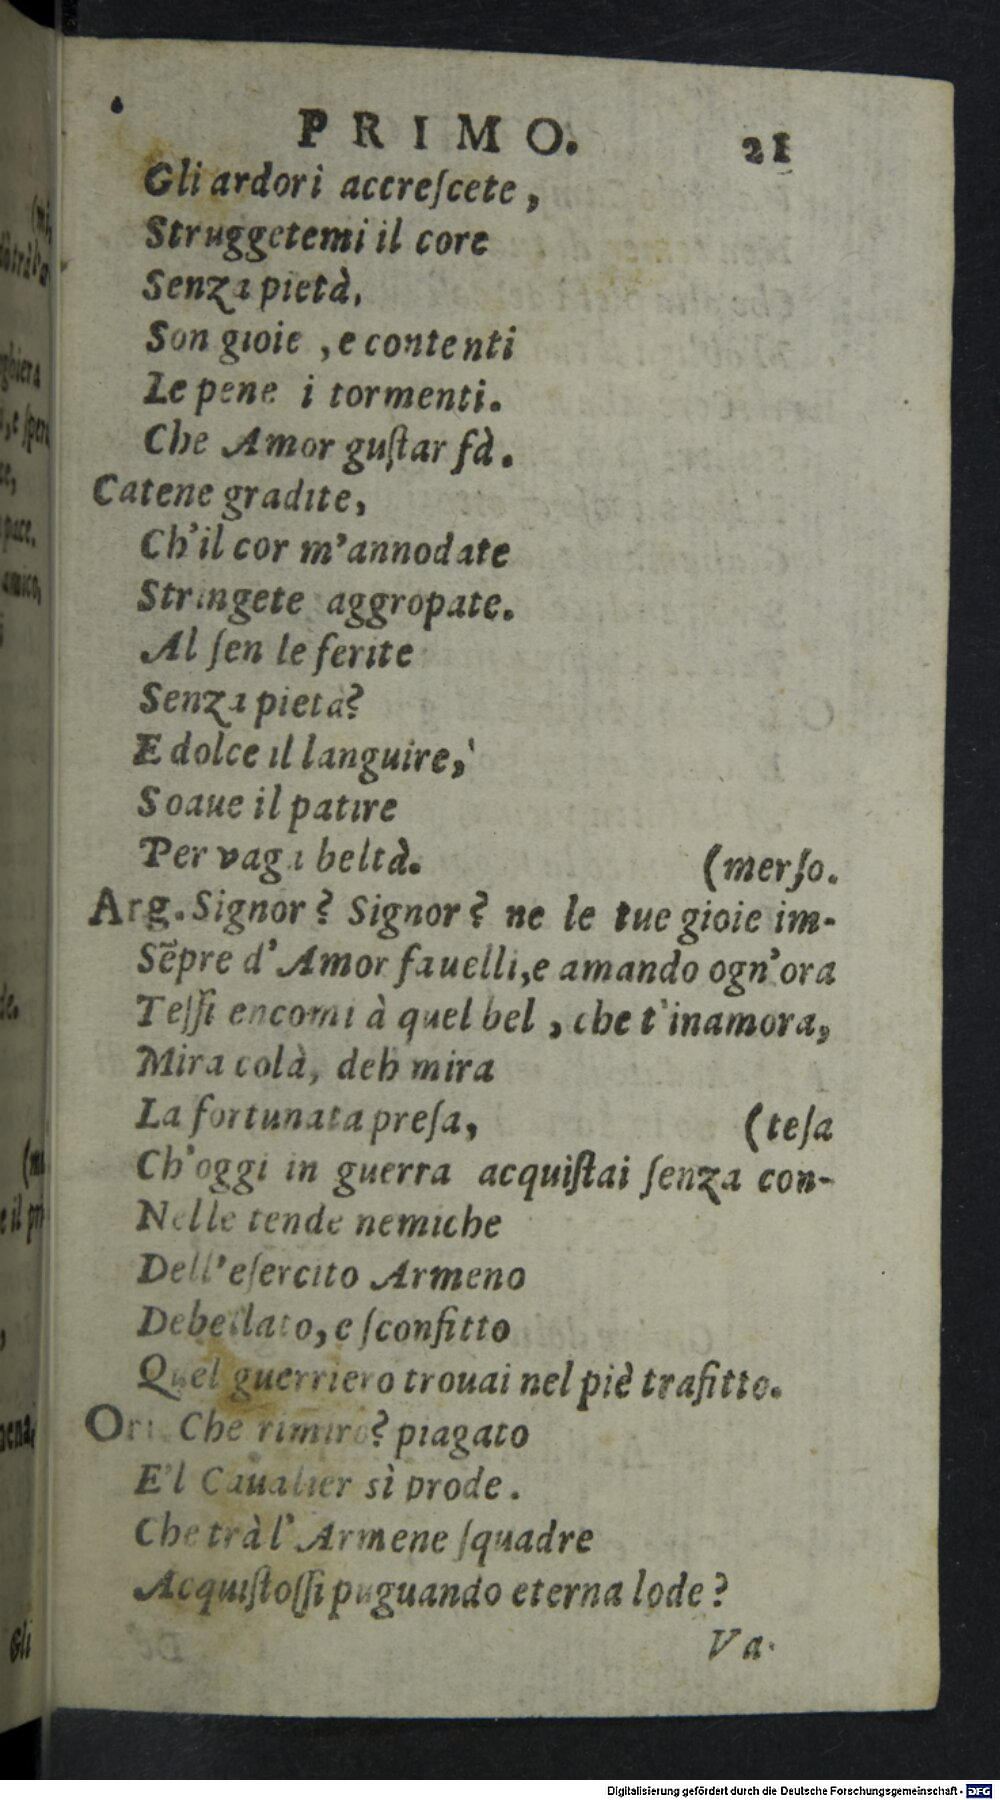 PRIMO. 21
Gli ardori accreſcete,
Struggetemi il core
Senza pietà.
Son gioie, e contenti
Le pene i tormenti.
Che Amor guſtar fà.
Catene gradite,
Ch'il cor m'annodate
Stringete aggropate.
Al ſen le ferite
Senza pietà?
E dolce il languire,
Soaue il patire
Per vaga beltà. (merſo.
Arg. Signor? Signor? ne le tue gioie im-
Sẽpre d'Amor fauelli, e amando ogn'ora
Teſſi encomi à quel bel, che t'inamora,
Mira colà, deh mira
La fortunata preſa, (teſa
Ch'oggi in guerra acquiſtai ſenza con-
Nelle tende nemiche
Dell'eſercito Armeno
Debellato, e ſconfitto
Quel guerriero trouai nel piè trafitto.
Ori. Che rimiro? piagato
E'l Caualier sì prode.
Che trà l'Armene ſquadre
Acquiſtoſſi puguando eterna lode?
Va-
(mi,
ghiera
pace.
amico,
(mi
e il pri
Gli
Digitalisierung gefördert durch die Deutsche Forschungsgemeinschaft - DFG